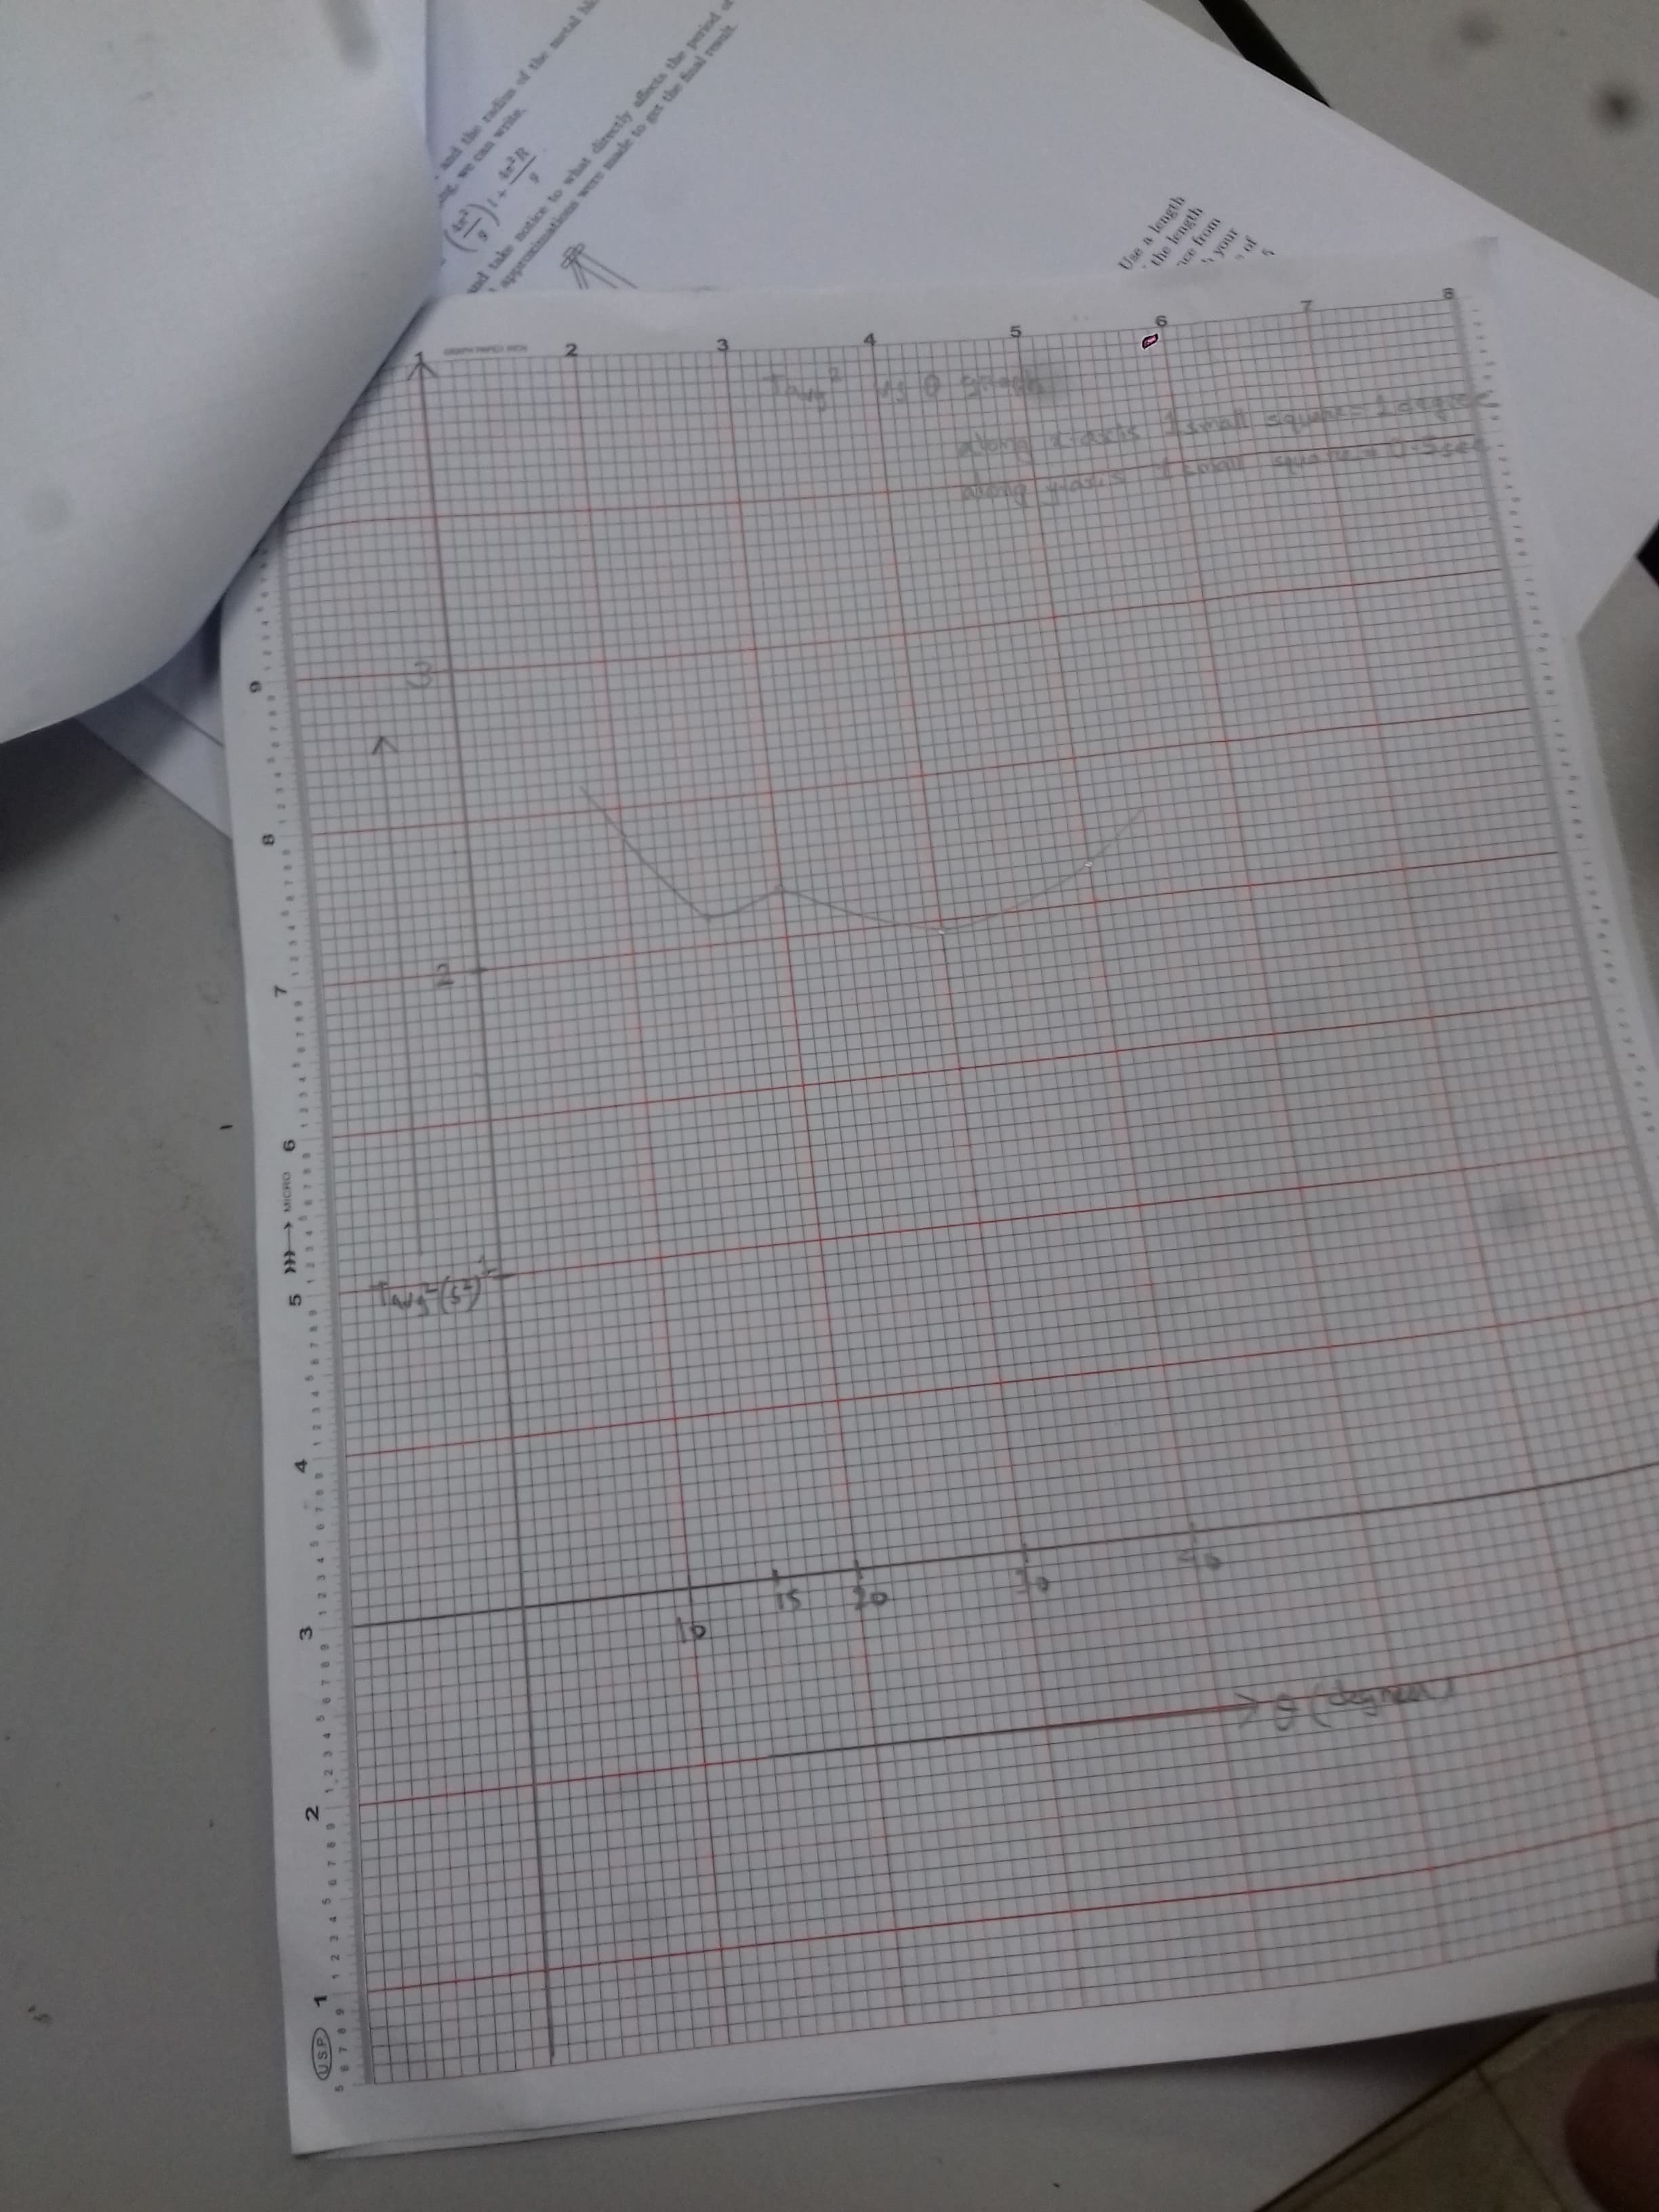 and the radius of the metal
we can write,
(4π²/g) l + 4π²R/g
and take notice to what directly affects the period of
approximations were made to get the final result.
Use a length
the length
nce from
h your
of
GRAPH PAPER
1 2 3 4 5 6 7 8
Tavg² vs θ graph
along x-axis 1 small square = 1 degree
along y-axis 1 small square = 0.5 sec
9
3
8
2
7
6
MICRO
5
Tavg² (s²)
1
4
10 15 20 30 40
3
θ (degrees)
2
1
USP